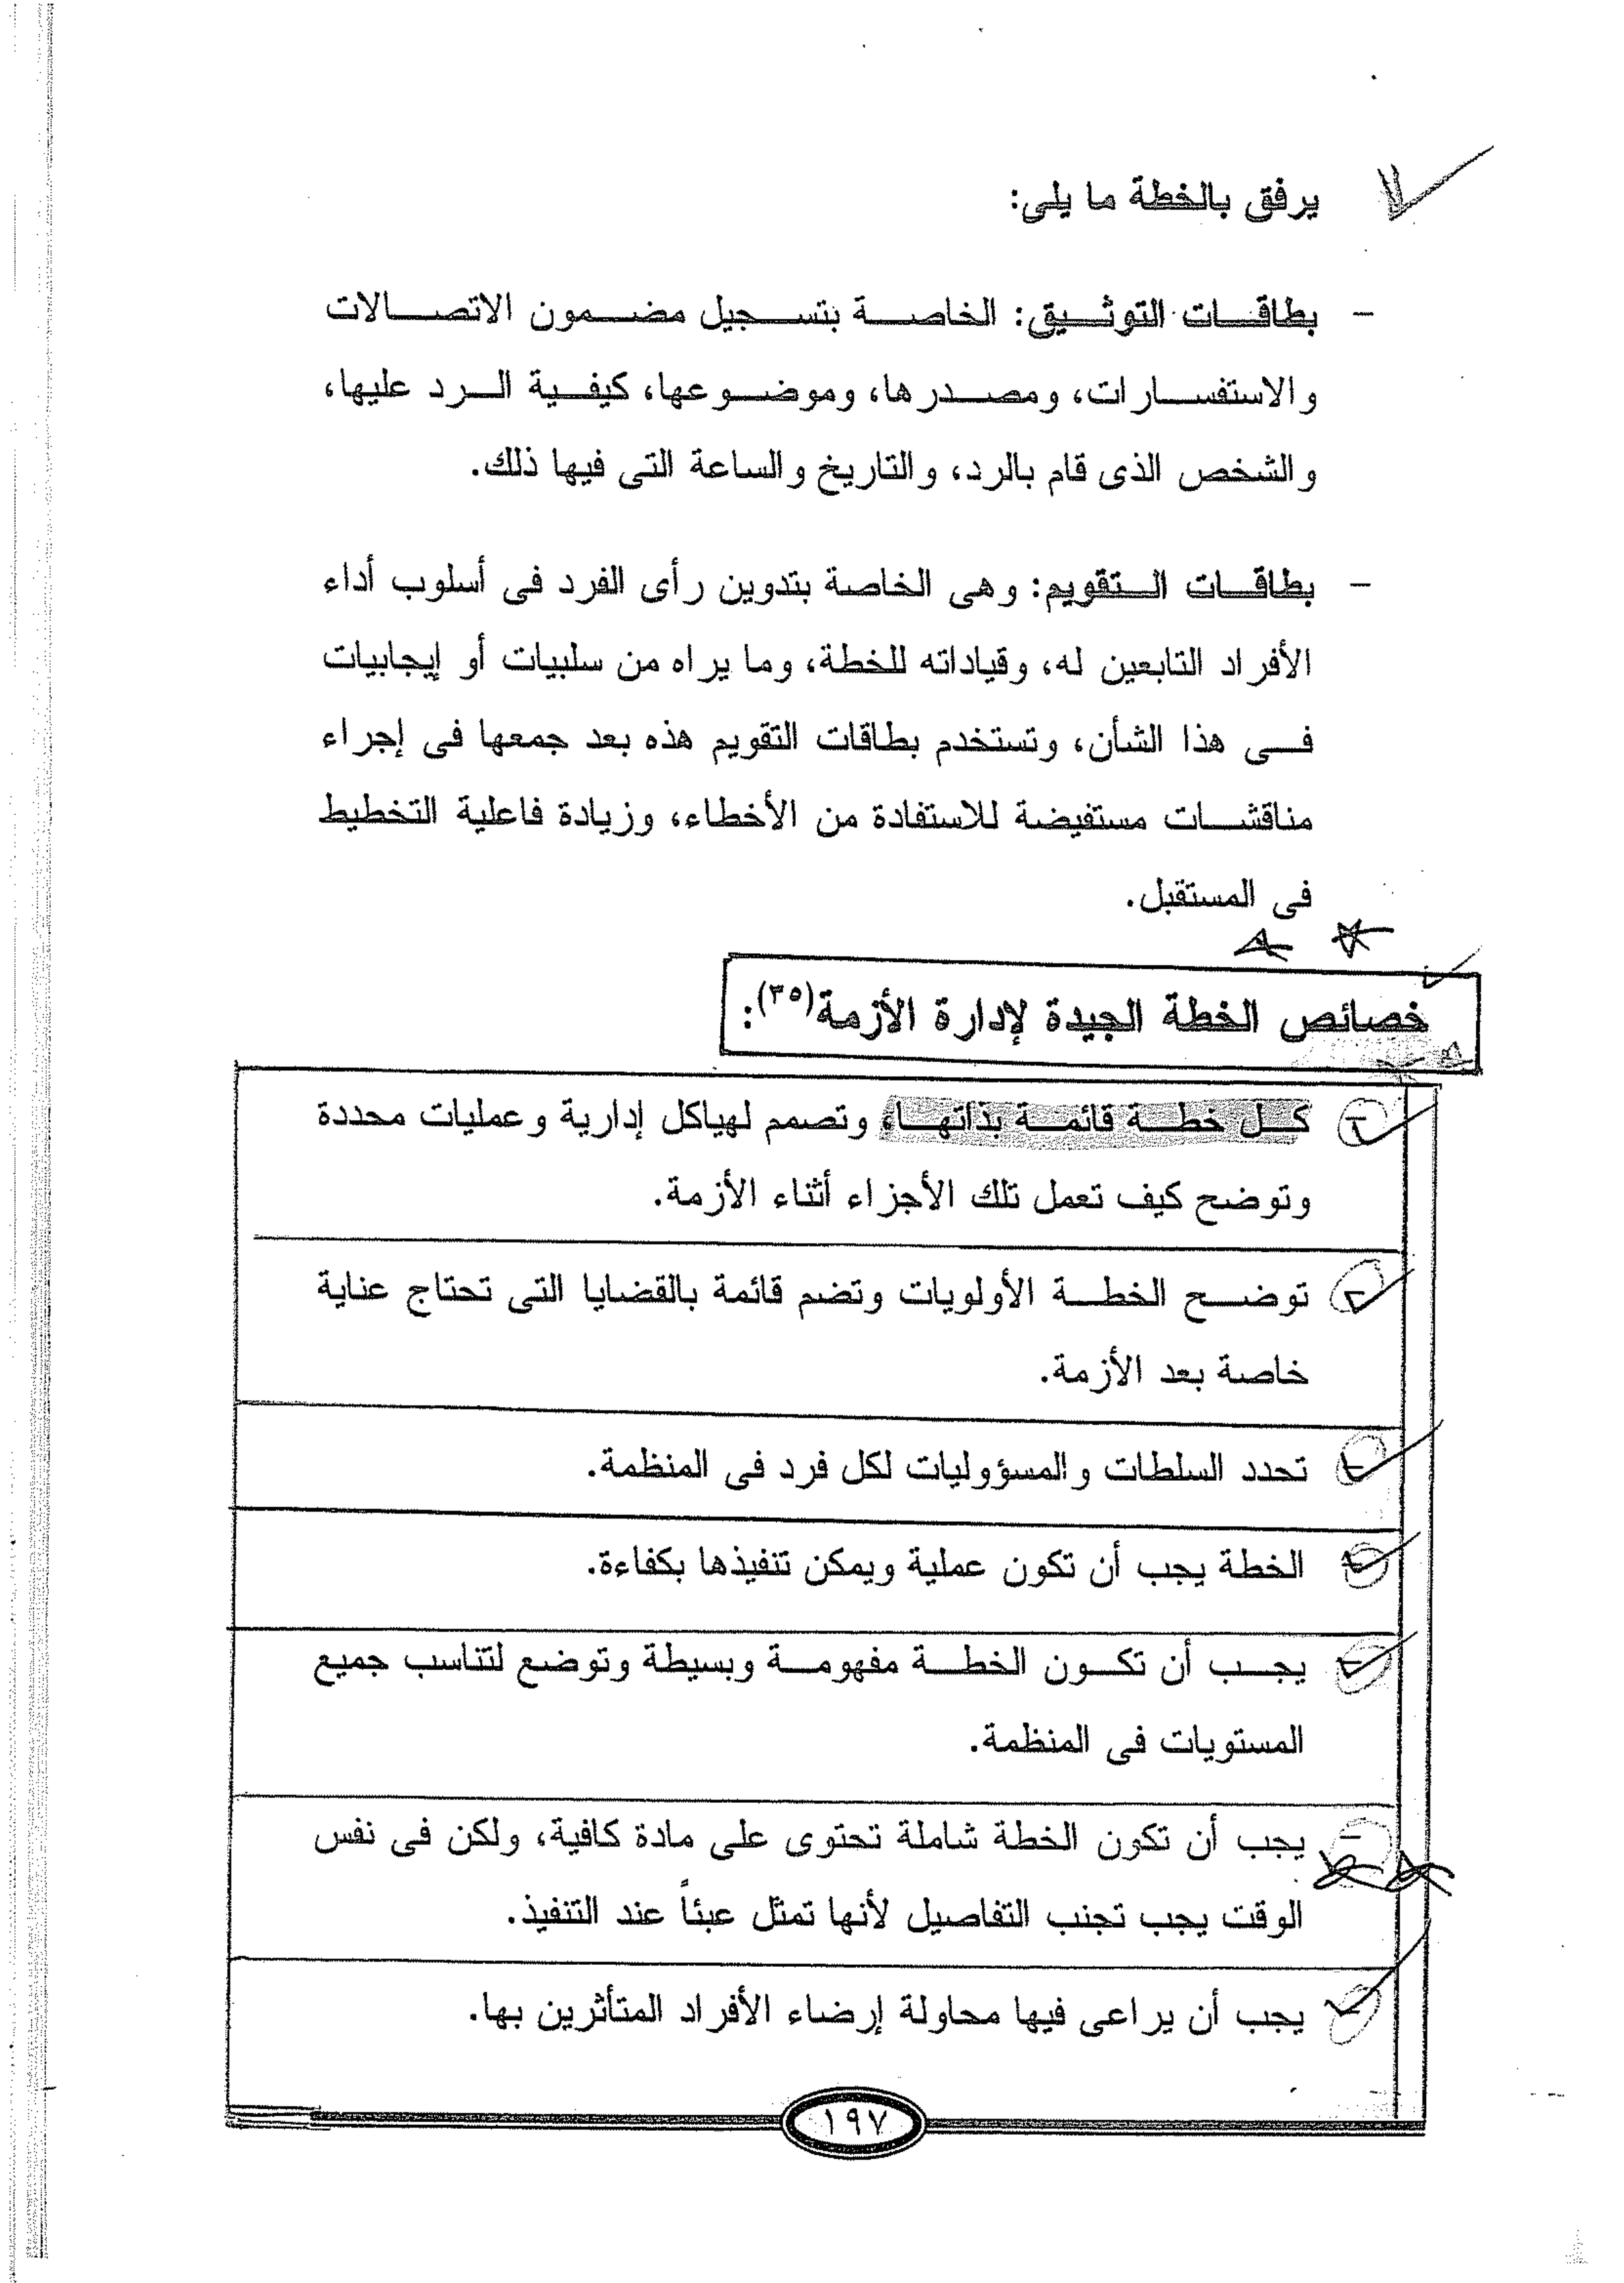 يرفق بالخطة ما يلى:
- بطاقات التوثيق: الخاصة بتسجيل مضمون الاتصالات
والاستفسارات، ومصدرها، وموضوعها، كيفية الرد عليها،
والشخص الذى قام بالرد، والتاريخ والساعة التى فيها ذلك.
- بطاقات التقويم: وهى الخاصة بتدوين رأى الفرد فى أسلوب أداء
الأفراد التابعين له، وقياداته للخطة، وما يراه من سلبيات أو إيجابيات
فى هذا الشأن، وتستخدم بطاقات التقويم هذه بعد جمعها فى إجراء
مناقشات مستفيضة للاستفادة من الأخطاء، وزيادة فاعلية التخطيط
فى المستقبل.
خصائص الخطة الجيدة لإدارة الأزمة(٣٥):
- كل خطة قائمة بذاتها، وتصمم لهياكل إدارية وعمليات محددة
وتوضح كيف تعمل تلك الأجزاء أثناء الأزمة.
- توضح الخطة الأولويات وتضم قائمة بالقضايا التى تحتاج عناية
خاصة بعد الأزمة.
- تحدد السلطات والمسؤوليات لكل فرد فى المنظمة.
- الخطة يجب أن تكون عملية ويمكن تنفيذها بكفاءة.
- يجب أن تكون الخطة مفهومة وبسيطة وتوضع لتناسب جميع
المستويات فى المنظمة.
- يجب أن تكون الخطة شاملة تحتوى على مادة كافية، ولكن فى نفس
الوقت يجب تجنب التفاصيل لأنها تمثل عبئاً عند التنفيذ.
- يجب أن يراعى فيها محاولة إرضاء الأفراد المتأثرين بها.
١٩٧